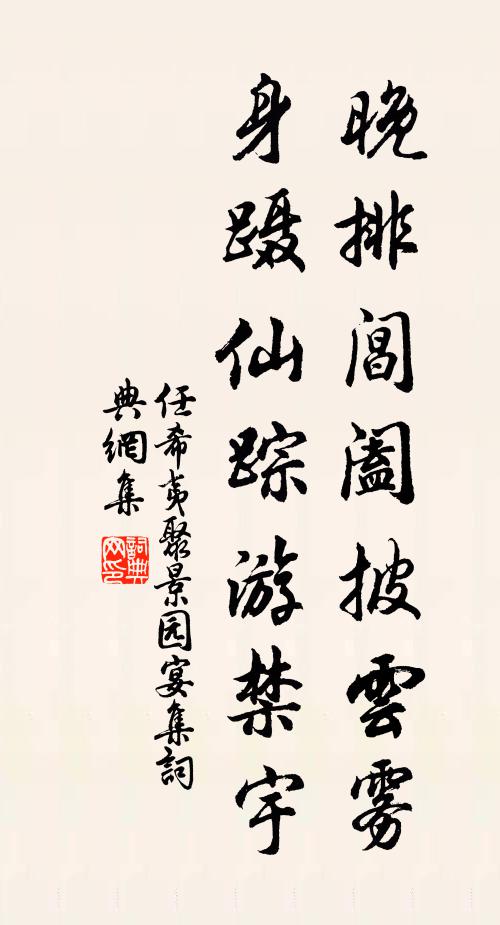 晚排閶阖披雲雾
身蹑仙踪游禁宇
任希夷聚景园宴集詞
典網集
詞典网印